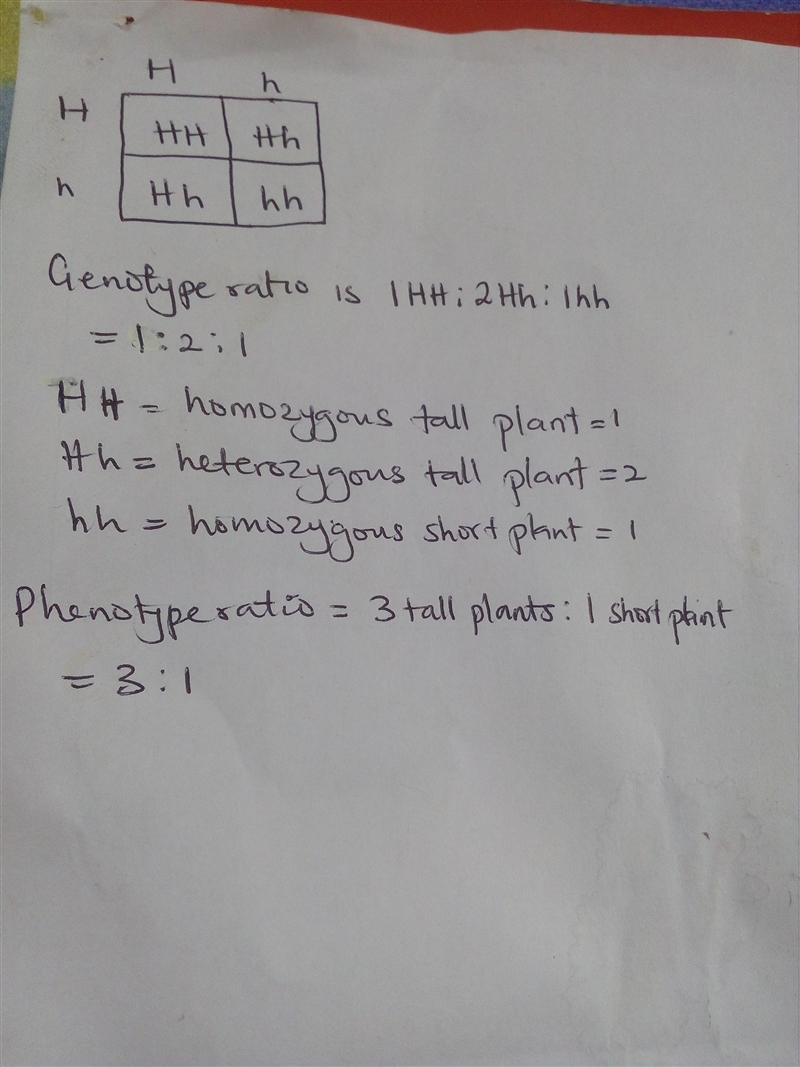 H h
H HH Hh
h Hh hh
Genotype ratio is 1HH : 2Hh : 1hh
= 1 : 2 : 1
HH = homozygous tall plant = 1
Hh = heterozygous tall plant = 2
hh = homozygous short plant = 1
Phenotype ratio = 3 tall plants : 1 short plant
= 3 : 1